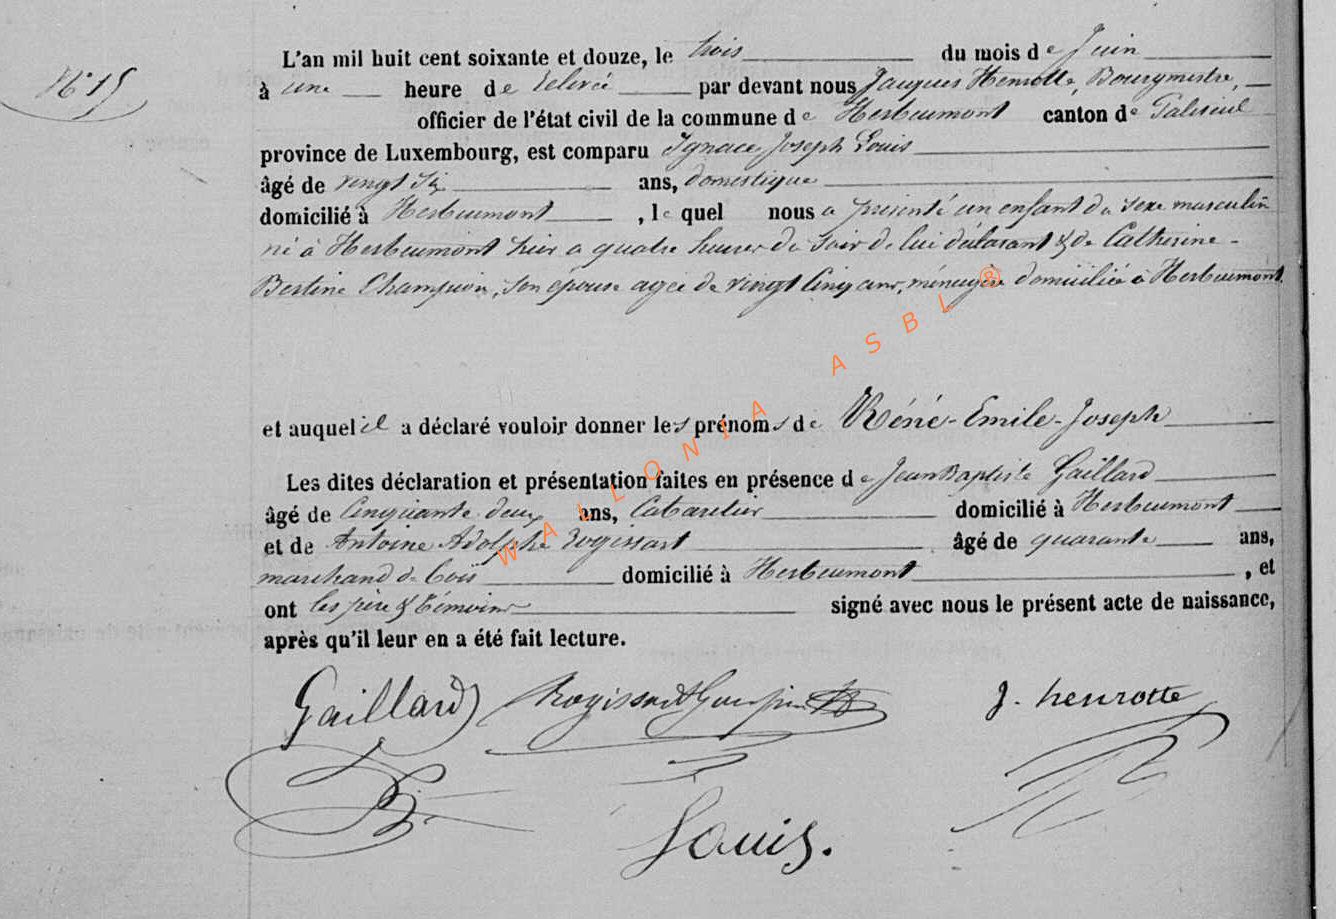 N° 15
L'an mil huit cent soixante et douze, le trois du mois de Juin
à une heure de relevé par devant nous Jacques Henrotte, Bourgmestre,
officier de l'état civil de la commune de Herbeumont canton de Paliseul
province de Luxembourg, est comparu Ignace Joseph Louis
âgé de vingt Six ans, domestique
domicilié à Herbeumont, lequel nous a présenté un enfant du sexe masculin
né à Herbeumont hier a quatre heures du Soir de lui déclarant & de Catherine-
Bertine Champion, son épouse agée de vingt Cinq ans, ménagère domiciliée à Herbeumont.
et auquel il a déclaré vouloir donner les prénoms de Réné-Emile-Joseph
Les dites déclaration et présentation faites en présence de Jean Baptiste Gaillard
âgé de Cinquante deux ans, Cabaretier domicilié à Herbeumont
et de Antoine Adolphe Rogissart âgé de quarante ans,
marchand de bois domicilié à Herbeumont, et
ont les père & témoins signé avec nous le présent acte de naissance,
après qu'il leur en a été fait lecture.
Gaillard Rogissart J. henrotte
Louis.
WALLONIA ASBL ®